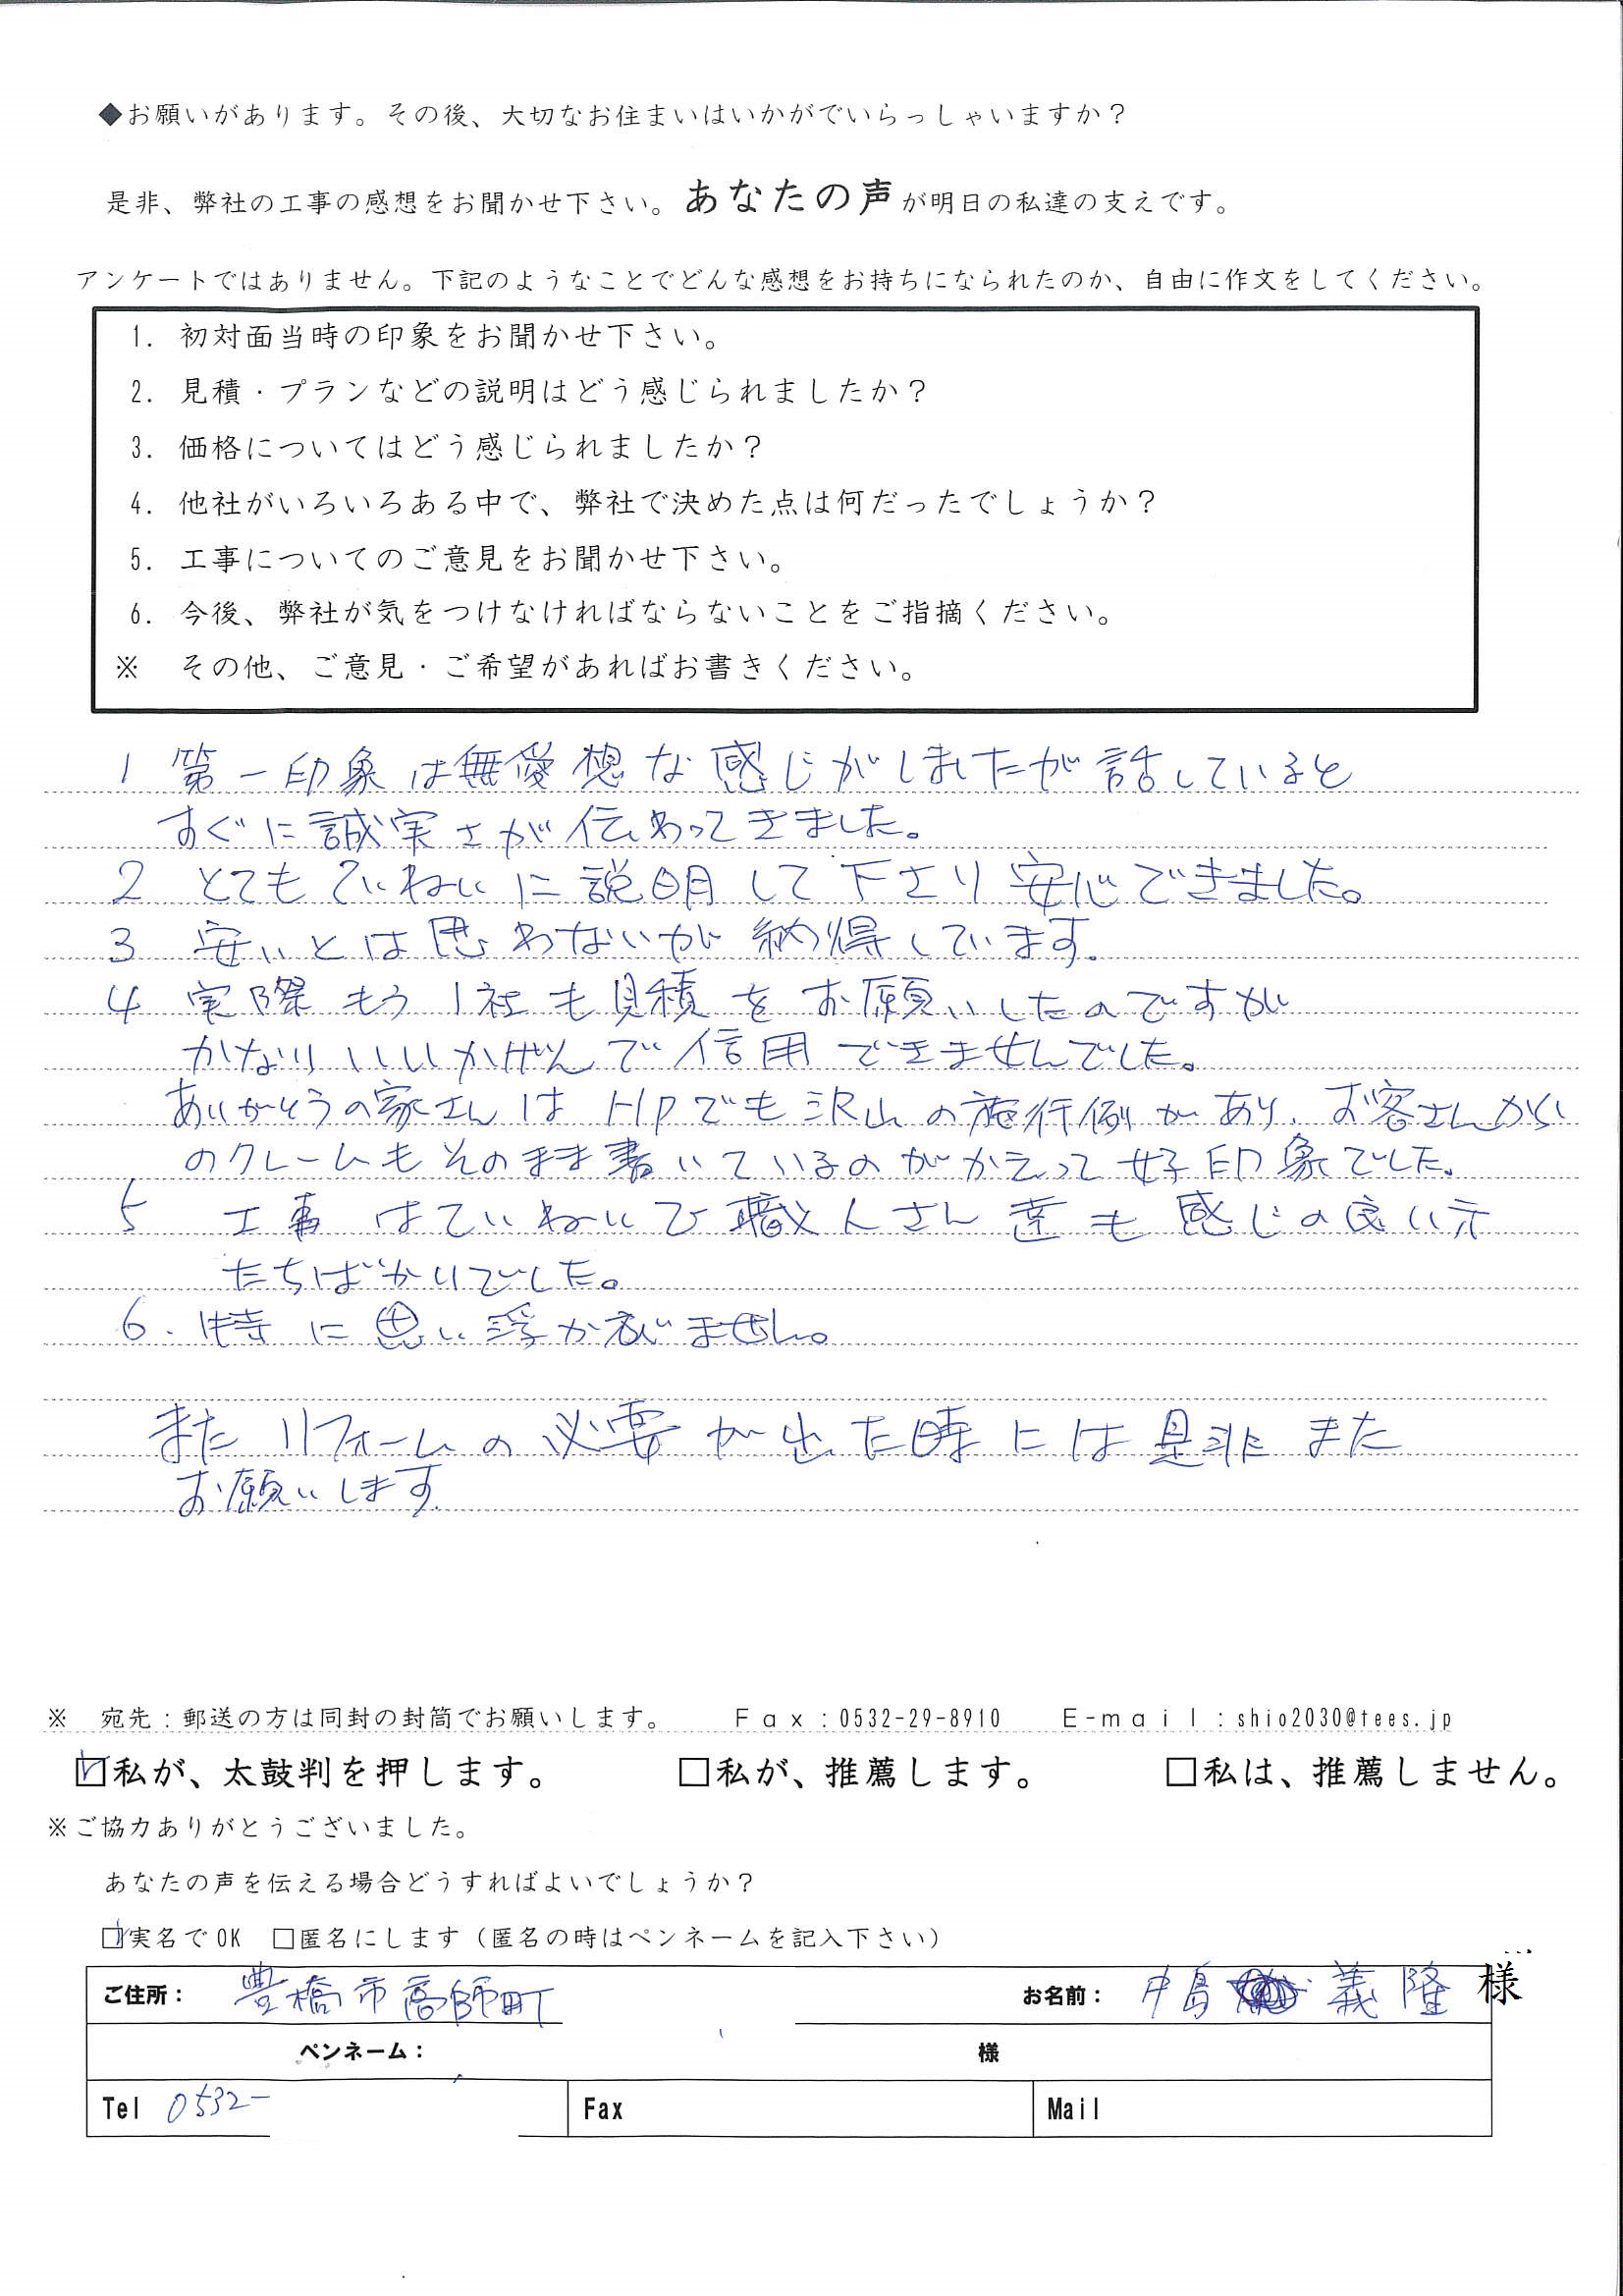 ◆お願いがあります。その後、大切なお住まいはいかがでいらっしゃいますか？
是非、弊社の工事の感想をお聞かせ下さい。あなたの声が明日の私達の支えです。
アンケートではありません。下記のようなことでどんな感想をお持ちになられたのか、自由に作文をしてください。
1. 初対面当時の印象をお聞かせ下さい。
2. 見積・プランなどの説明はどう感じられましたか？
3. 価格についてはどう感じられましたか？
4. 他社がいろいろある中で、弊社で決めた点は何だったでしょうか？
5. 工事についてのご意見をお聞かせ下さい。
6. 今後、弊社が気をつけなければならないことをご指摘ください。
※ その他、ご意見・ご希望があればお書きください。
1 第一印象は無愛想な感じがしましたが話していると
すぐに誠実さが伝わってきました。
2 とてもていねいに説明して下さり安心できました。
3 安いとは思わないが納得しています.
4 実際もう1社も見積をお願いしたのですが
かなりいいかげんで信用できませんでした。
ありがとうの家さんはHPでも沢山の施行例があり、お客さんから
のクレームもそのまま書いているのがかえって好印象でした.
5 工事はていねいで職人さん達も感じの良い方
たちばかりでした。
6. 特に思い浮かびません。
またリフォームの必要が出た時には是非また
お願いします.
※ 宛先：郵送の方は同封の封筒でお願いします。 Ｆａｘ：0532-29-8910 Ｅ-ｍａｉｌ：shio2030@tees.jp
☑私が、太鼓判を押します。 □私が、推薦します。 □私は、推薦しません。
※ご協力ありがとうございました。
あなたの声を伝える場合どうすればよいでしょうか？
☑実名でOK □匿名にします（匿名の時はペンネームを記入下さい）
ご住所： 豊橋市高師町 お名前： 中島 義隆 様
ペンネーム： 様
Tel 0532- Fax Mail